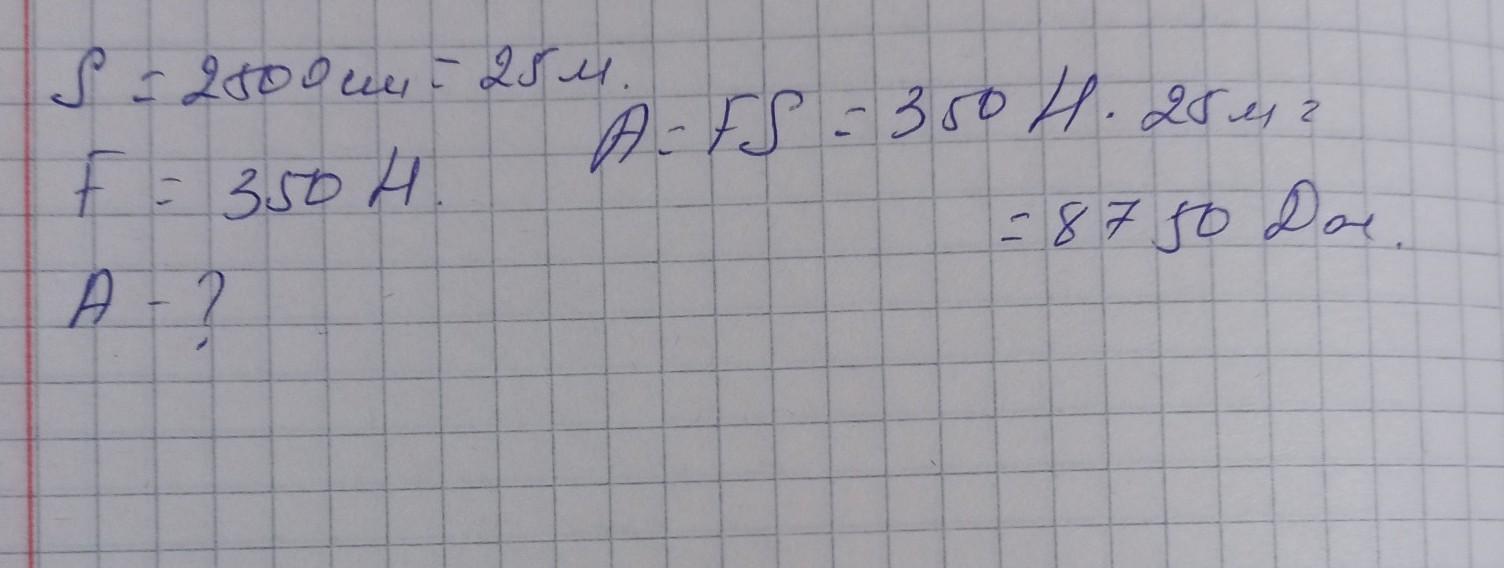 S = 2500 см = 25 м.
F = 350 Н.
A - ?
A = FS = 350 Н · 25 м =
= 8750 Дж.